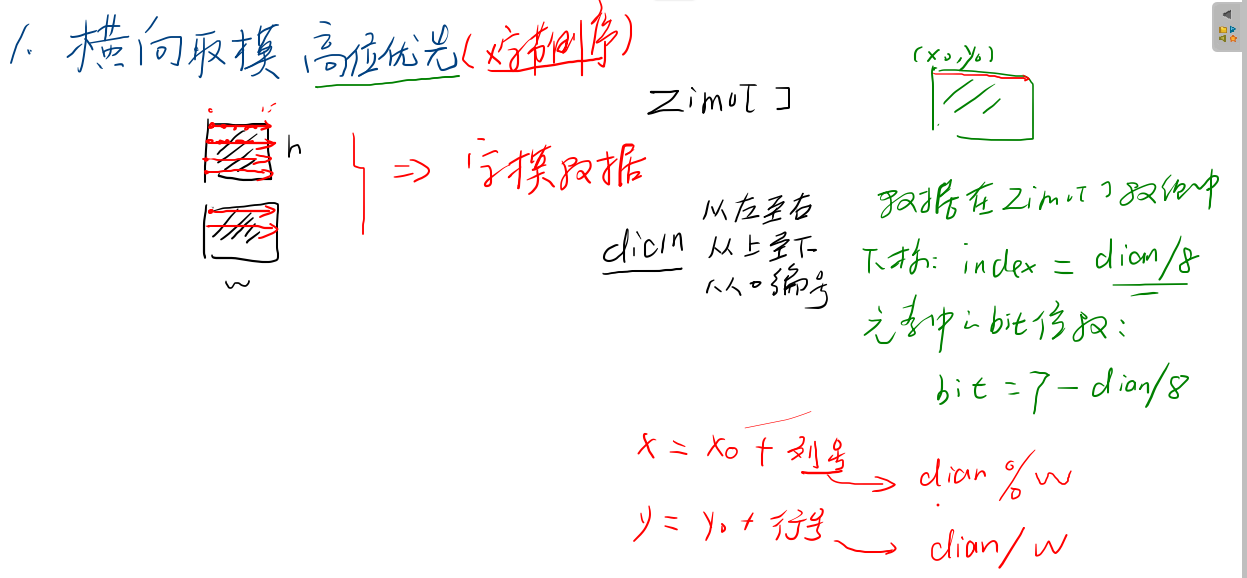 1. 横向取模 高位优先(x字节倒序)
h
w
⇒ 字模数据
zimo[ ]
dian
从左至右
从上至下
从0编号
(x0,y0)
数据在zimo[]数组中
下标: index = dian/8
元素中的bit位数:
bit = 7 - dian/8
x = x0 + 列号 → dian % w
y = y0 + 行号 → dian/w